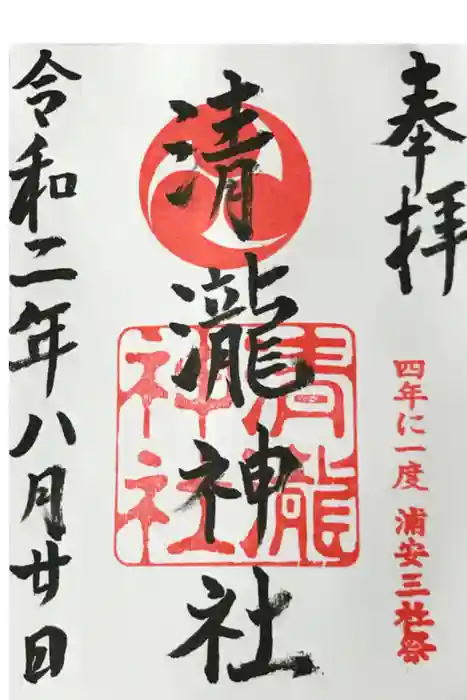 奉拝
四年に一度 浦安三社祭
清瀧神社
清瀧神社
令和二年八月廿日